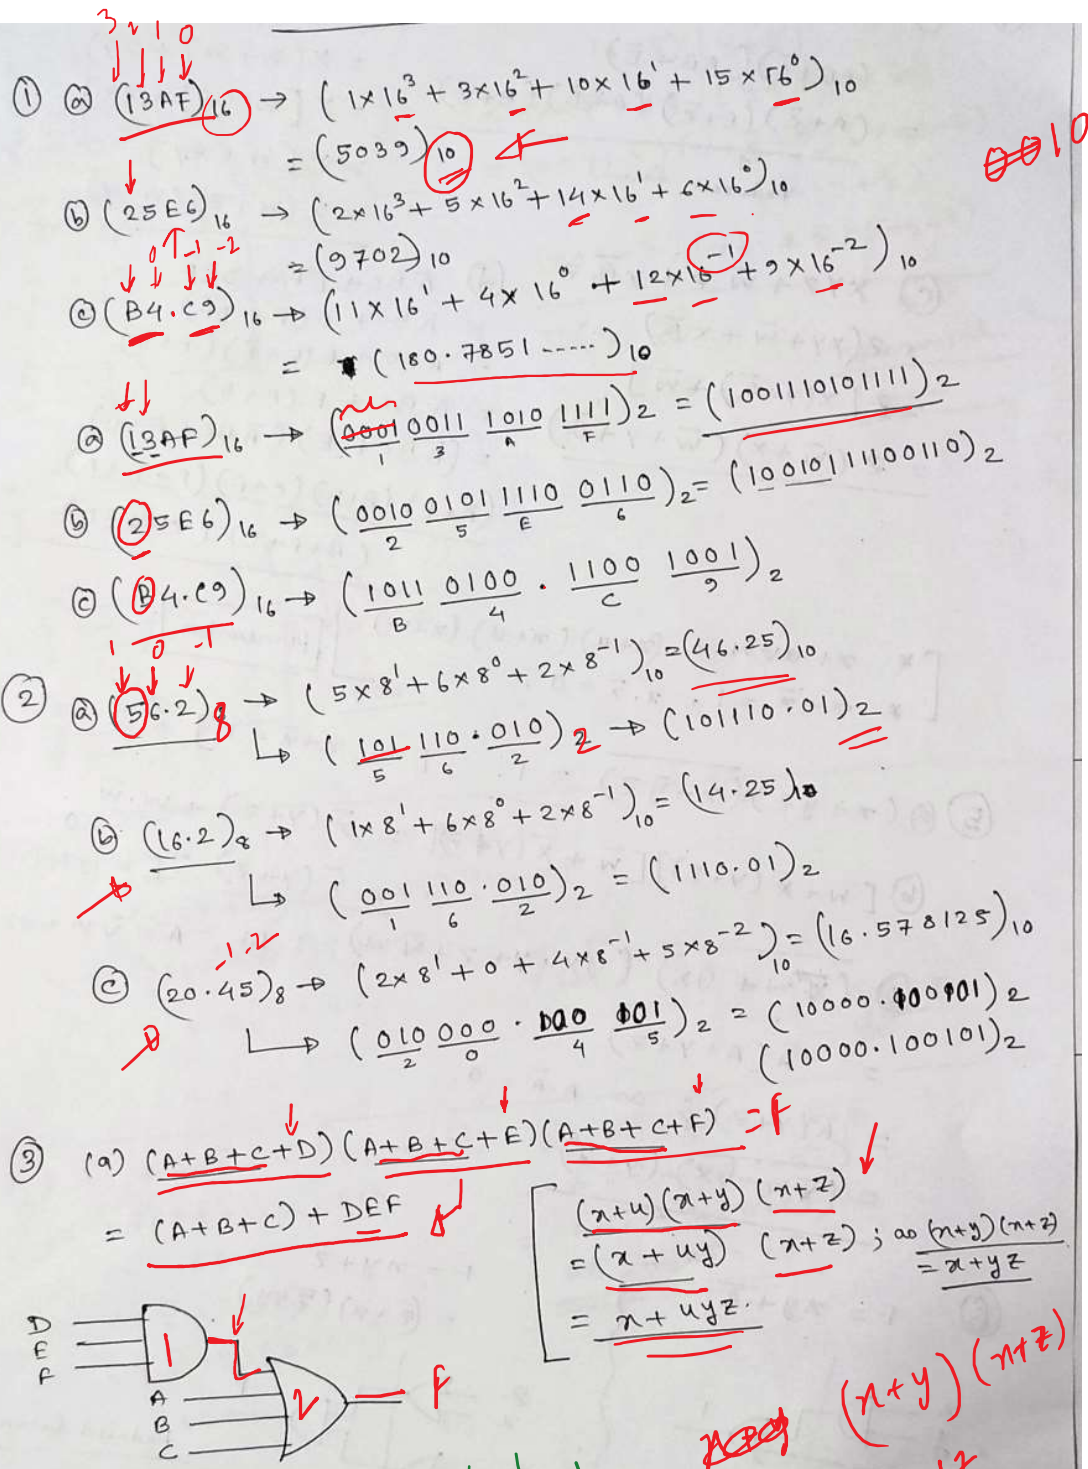 3 2 1 0
① ⓐ (13AF)₁₆ → (1×16³ + 3×16² + 10×16¹ + 15×16⁰)₁₀
= (5039)₁₀
0010
ⓑ (25E6)₁₆ → (2×16³ + 5×16² + 14×16¹ + 6×16⁰)₁₀
= (9702)₁₀
1 0 -1 -2
ⓒ (B4.C9)₁₆ → (11×16¹ + 4×16⁰ + 12×16⁻¹ + 9×16⁻²)₁₀
= (180.7851.....)₁₀
ⓐ (13AF)₁₆ → (0001 0011 1010 1111)₂ = (1001110101111)₂
1 3 A F
ⓑ (25E6)₁₆ → (0010 0101 1110 0110)₂ = (10010111100110)₂
2 5 E 6
ⓒ (B4.C9)₁₆ → (1011 0100 . 1100 1001)₂
B 4 C 9
1 0 -1
② ⓐ (56.2)₈ → (5×8¹ + 6×8⁰ + 2×8⁻¹)₁₀ = (46.25)₁₀
↳ (101 110 . 010)₂ → (101110.01)₂
5 6 2
ⓑ (16.2)₈ → (1×8¹ + 6×8⁰ + 2×8⁻¹)₁₀ = (14.25)₁₀
↳ (001 110 . 010)₂ = (1110.01)₂
1 6 2
-1 -2
ⓒ (20.45)₈ → (2×8¹ + 0 + 4×8⁻¹ + 5×8⁻²)₁₀ = (16.578125)₁₀
↳ (010 000 . 100 101)₂ = (10000.100101)₂
2 0 4 5
(10000.100101)₂
③ (a) (A+B+C+D)(A+B+C+E)(A+B+C+F) = F
= (A+B+C) + DEF
(x+u)(x+y)(x+z)
= (x+uy) (x+z) ; as (x+y)(x+z)
= x+yz
= x+uyz.
D
E
F
1
A
B
C
2
F
(x+y)(x+z)